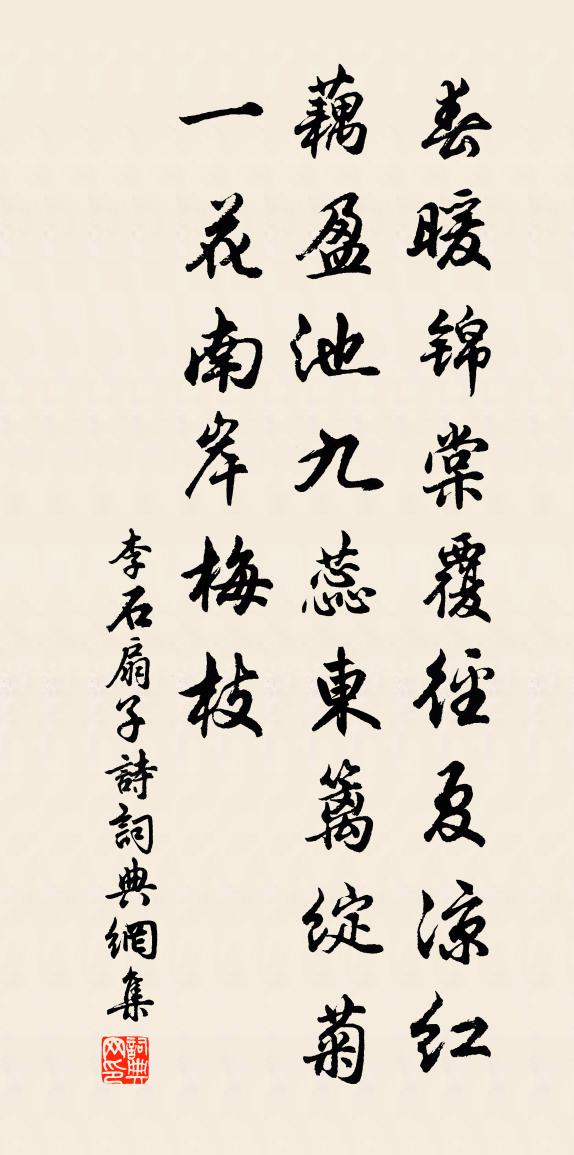 春暖锦棠覆径夏凉红
藕盈池九蕊東籬綻菊
一花南岸梅枝
李石扇子詩詞典網集
詞典网印